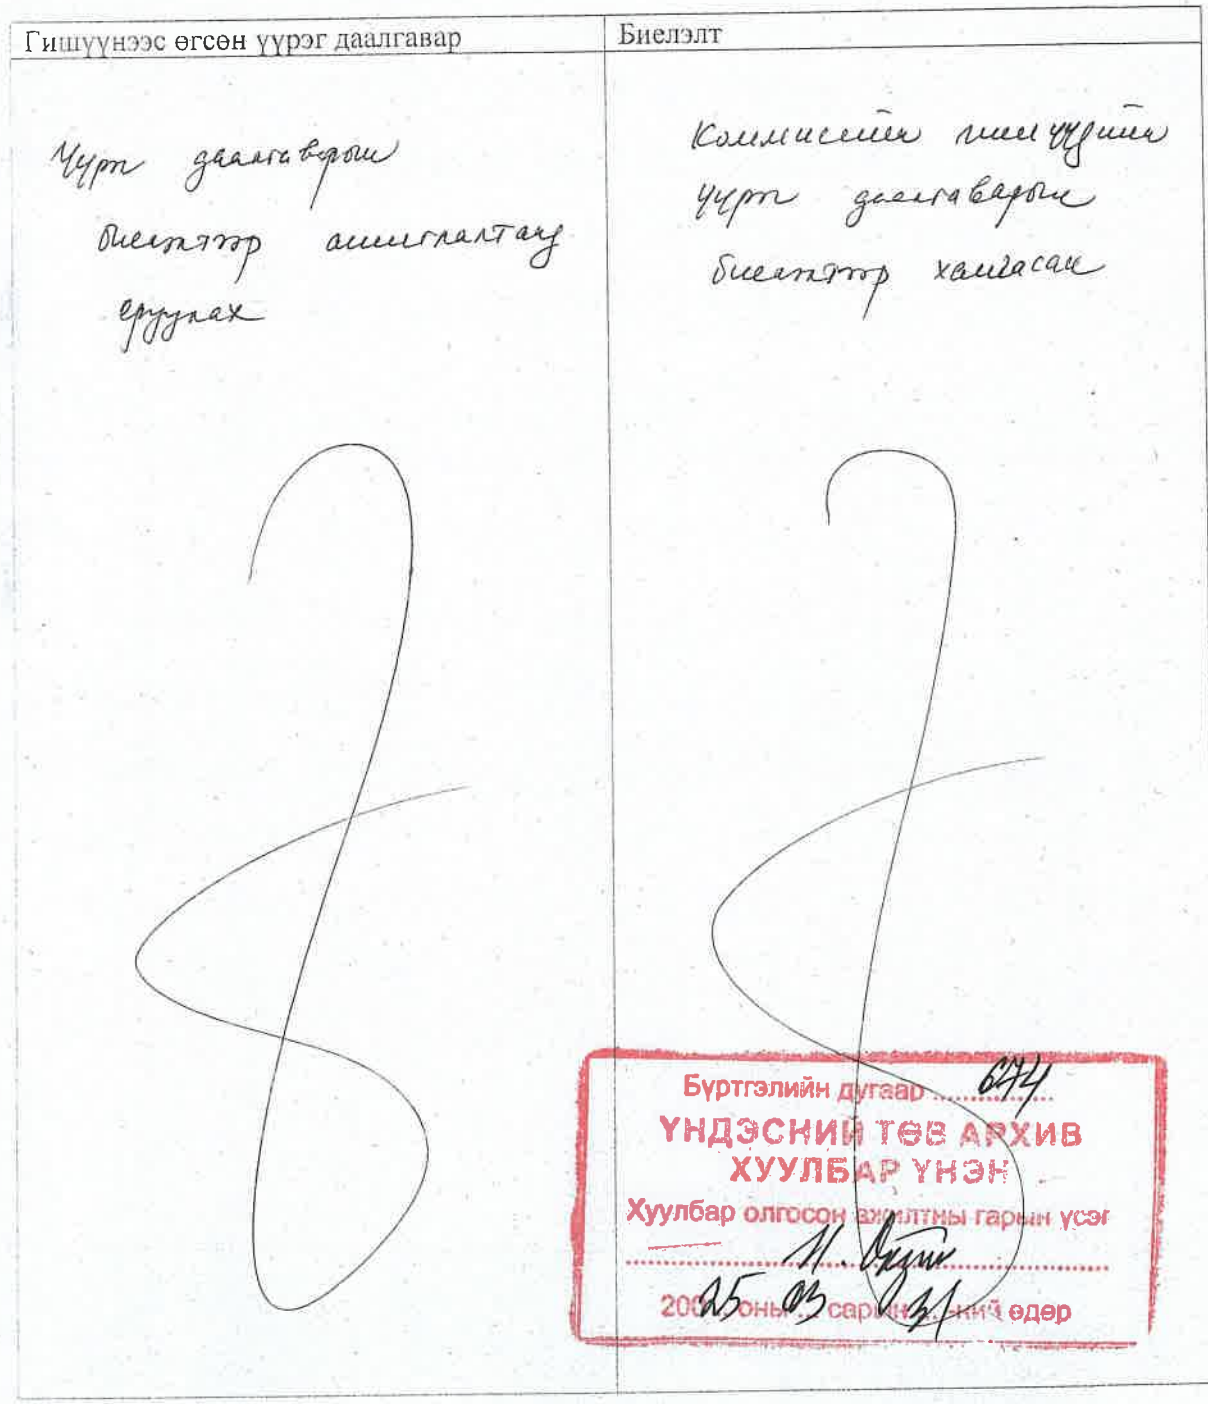 Гишүүнээс өгсөн үүрэг даалгавар
Биелэлт
Үүрэг даалгаварын
биелэлтээр ашиглалтанд
оруулах
Коммисийн гишүүдийн
үүрэг даалгаварын
биелэлтээр хангасан
Бүртгэлийн дугаар ........ 674
ҮНДЭСНИЙ ТӨВ АРХИВ
ХУУЛБАР ҮНЭН
Хуулбар олгосон ажилтны гарын үсэг
Н.
2025 оны 03 сарын 31 -ний өдөр